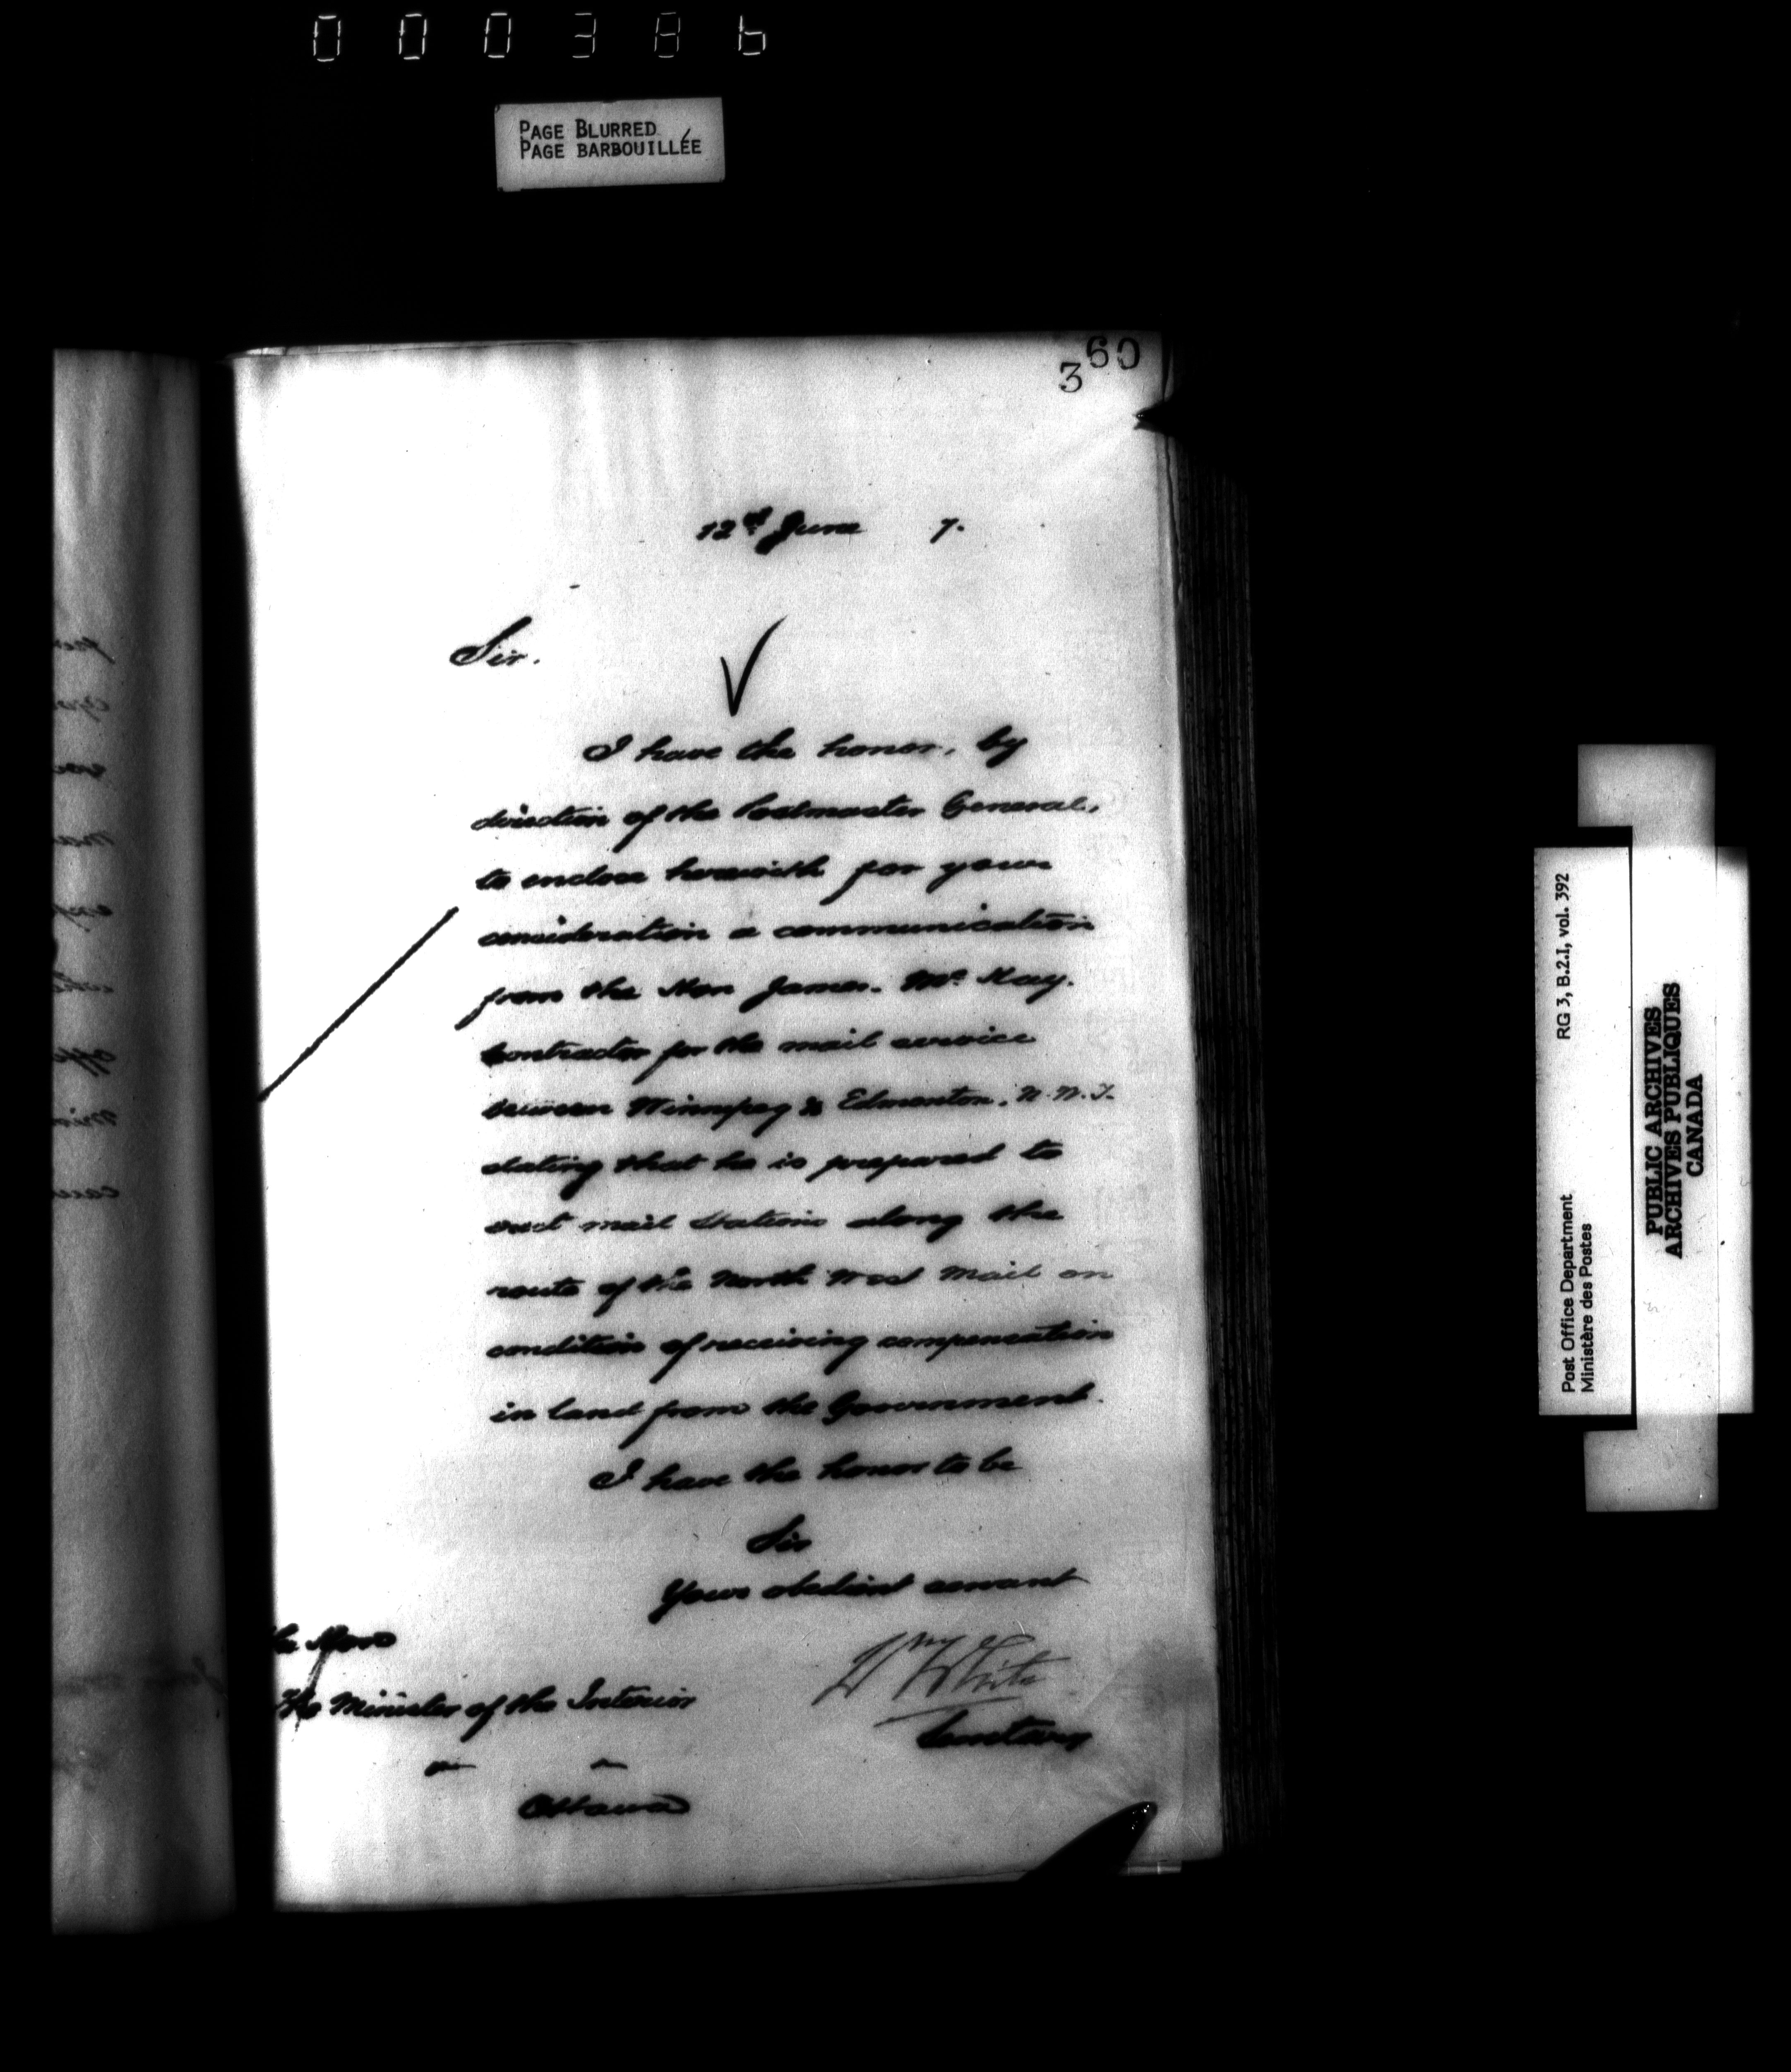 000386
PAGE BLURRED
PAGE BARBOUILLÉE
360
12th June 7.
Sir.
I have the honor, by
direction of the Postmaster General,
to enclose herewith for your
consideration a communication
from the Hon James. Mc Kay.
Contractor for the mail service
between Winnipeg & Edmonton. N.W.T.
stating that he is prepared to
erect mail stations along the
route of the North West Mail on
condition of receiving compensation
in land from the Government.
I have the honor to be
Sir
Your obedient servant
Wm White
Secretary
The Hon
The Minister of the Interior
Ottawa
Post Office Department
Ministère des Postes
RG 3, B.2.I, vol. 392
PUBLIC ARCHIVES
ARCHIVES PUBLIQUES
CANADA